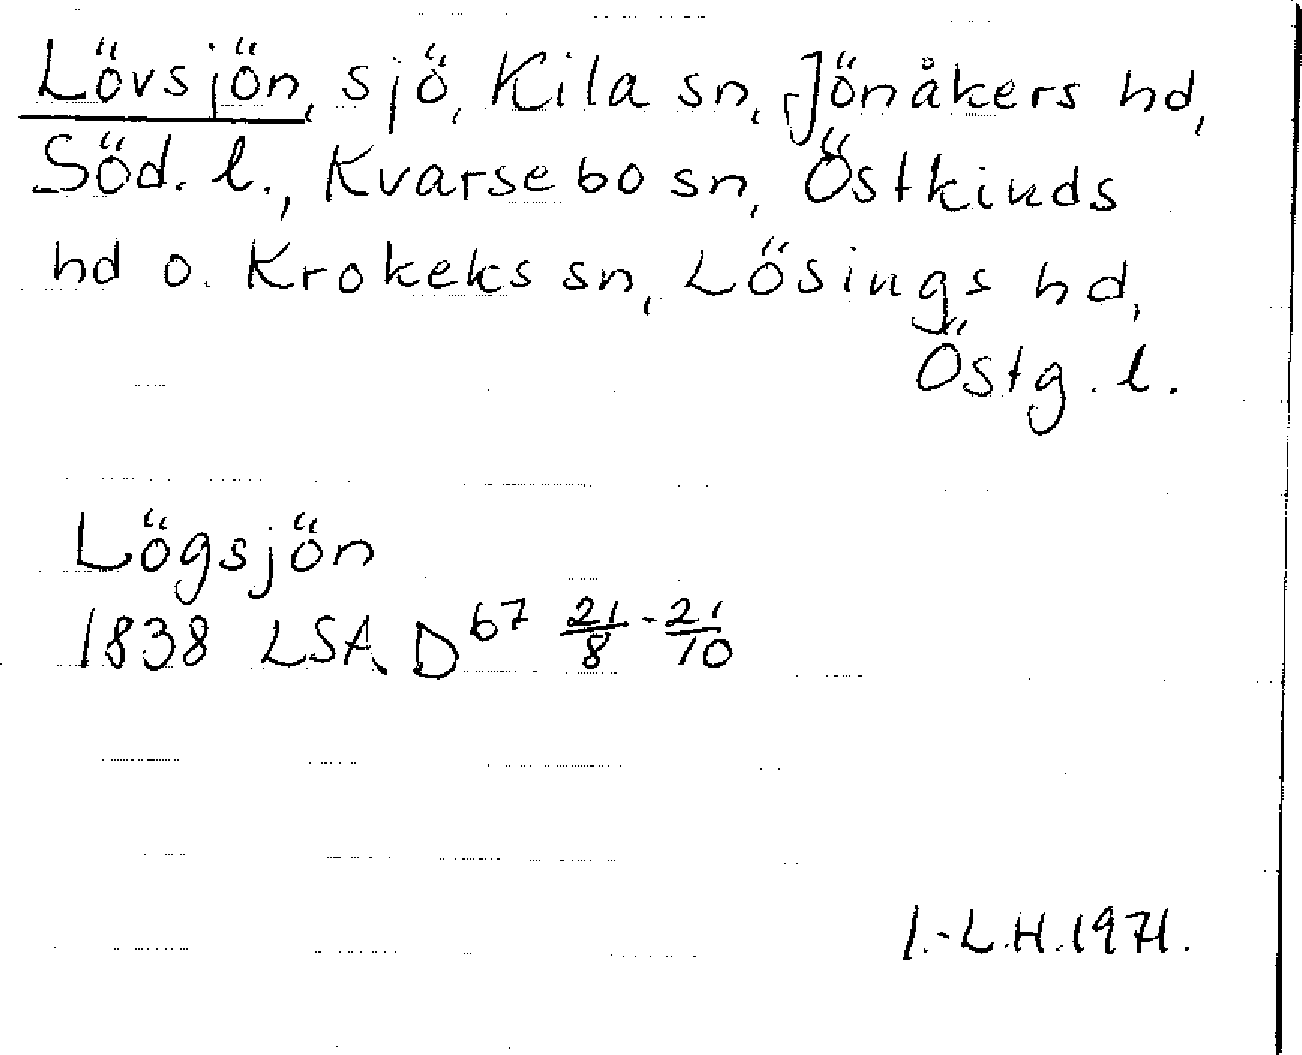 Lövsjön, sjö, Kila sn, Jönåkers hd,
Söd. l., Kvarsebo sn, Östkinds
hd o. Krokeks sn, Lösings hd,
Östg. l.
Lögsjön
1838 LSA D67 21/8-21/10
I.-L.H.1971.